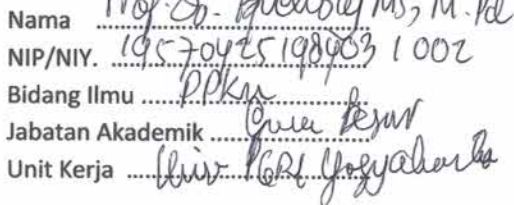 Nama Prof. Dr. MS, M.Pd
NIP/NIY. 19570425198403 1 002
Bidang Ilmu ..... PPKn
Jabatan Akademik ..... Guru Besar
Unit Kerja ..... Univ PGRI Yogyakarta